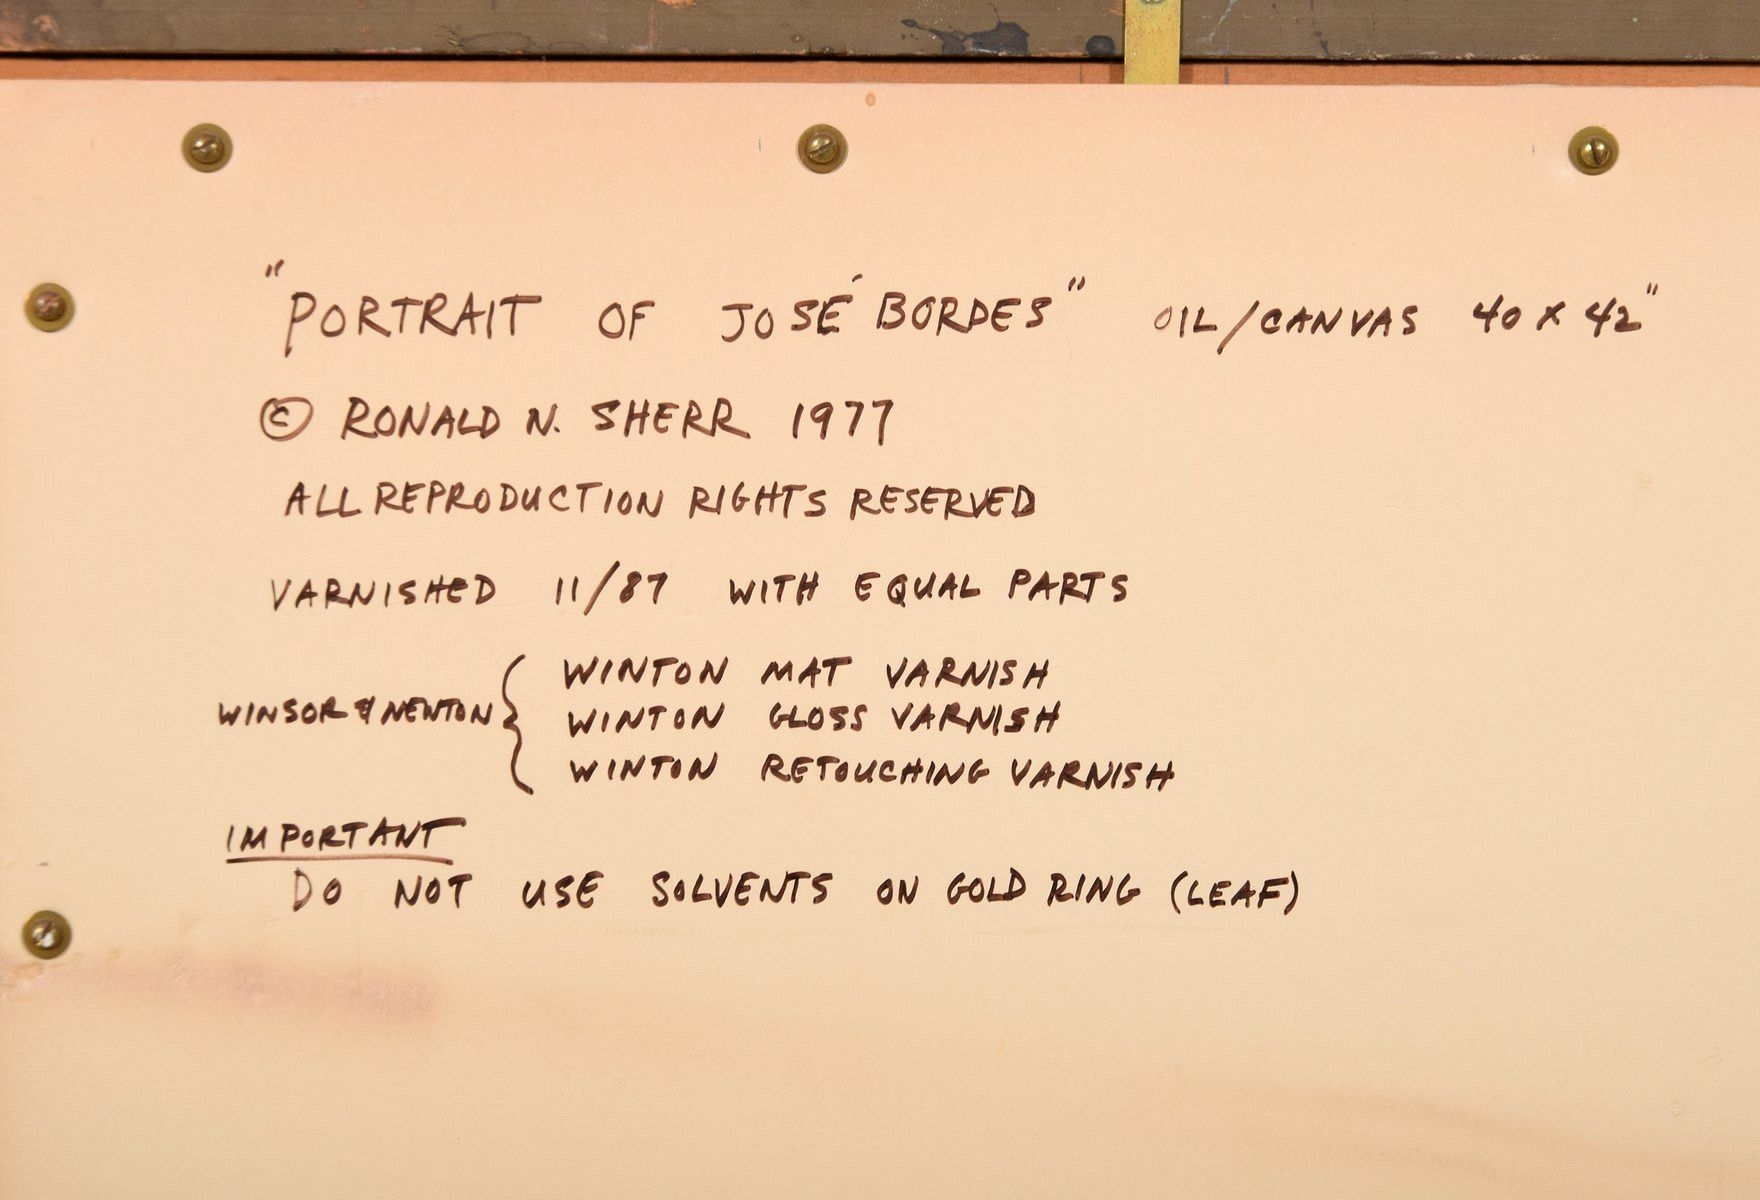 "PORTRAIT OF JOSÉ BORDES" OIL/CANVAS 40 x 42"
© RONALD N. SHERR 1977
ALL REPRODUCTION RIGHTS RESERVED
VARNISHED 11/87 WITH EQUAL PARTS
WINTON MAT VARNISH
WINSOR & NEWTON { WINTON GLOSS VARNISH
WINTON RETOUCHING VARNISH
IMPORTANT
DO NOT USE SOLVENTS ON GOLD RING (LEAF)